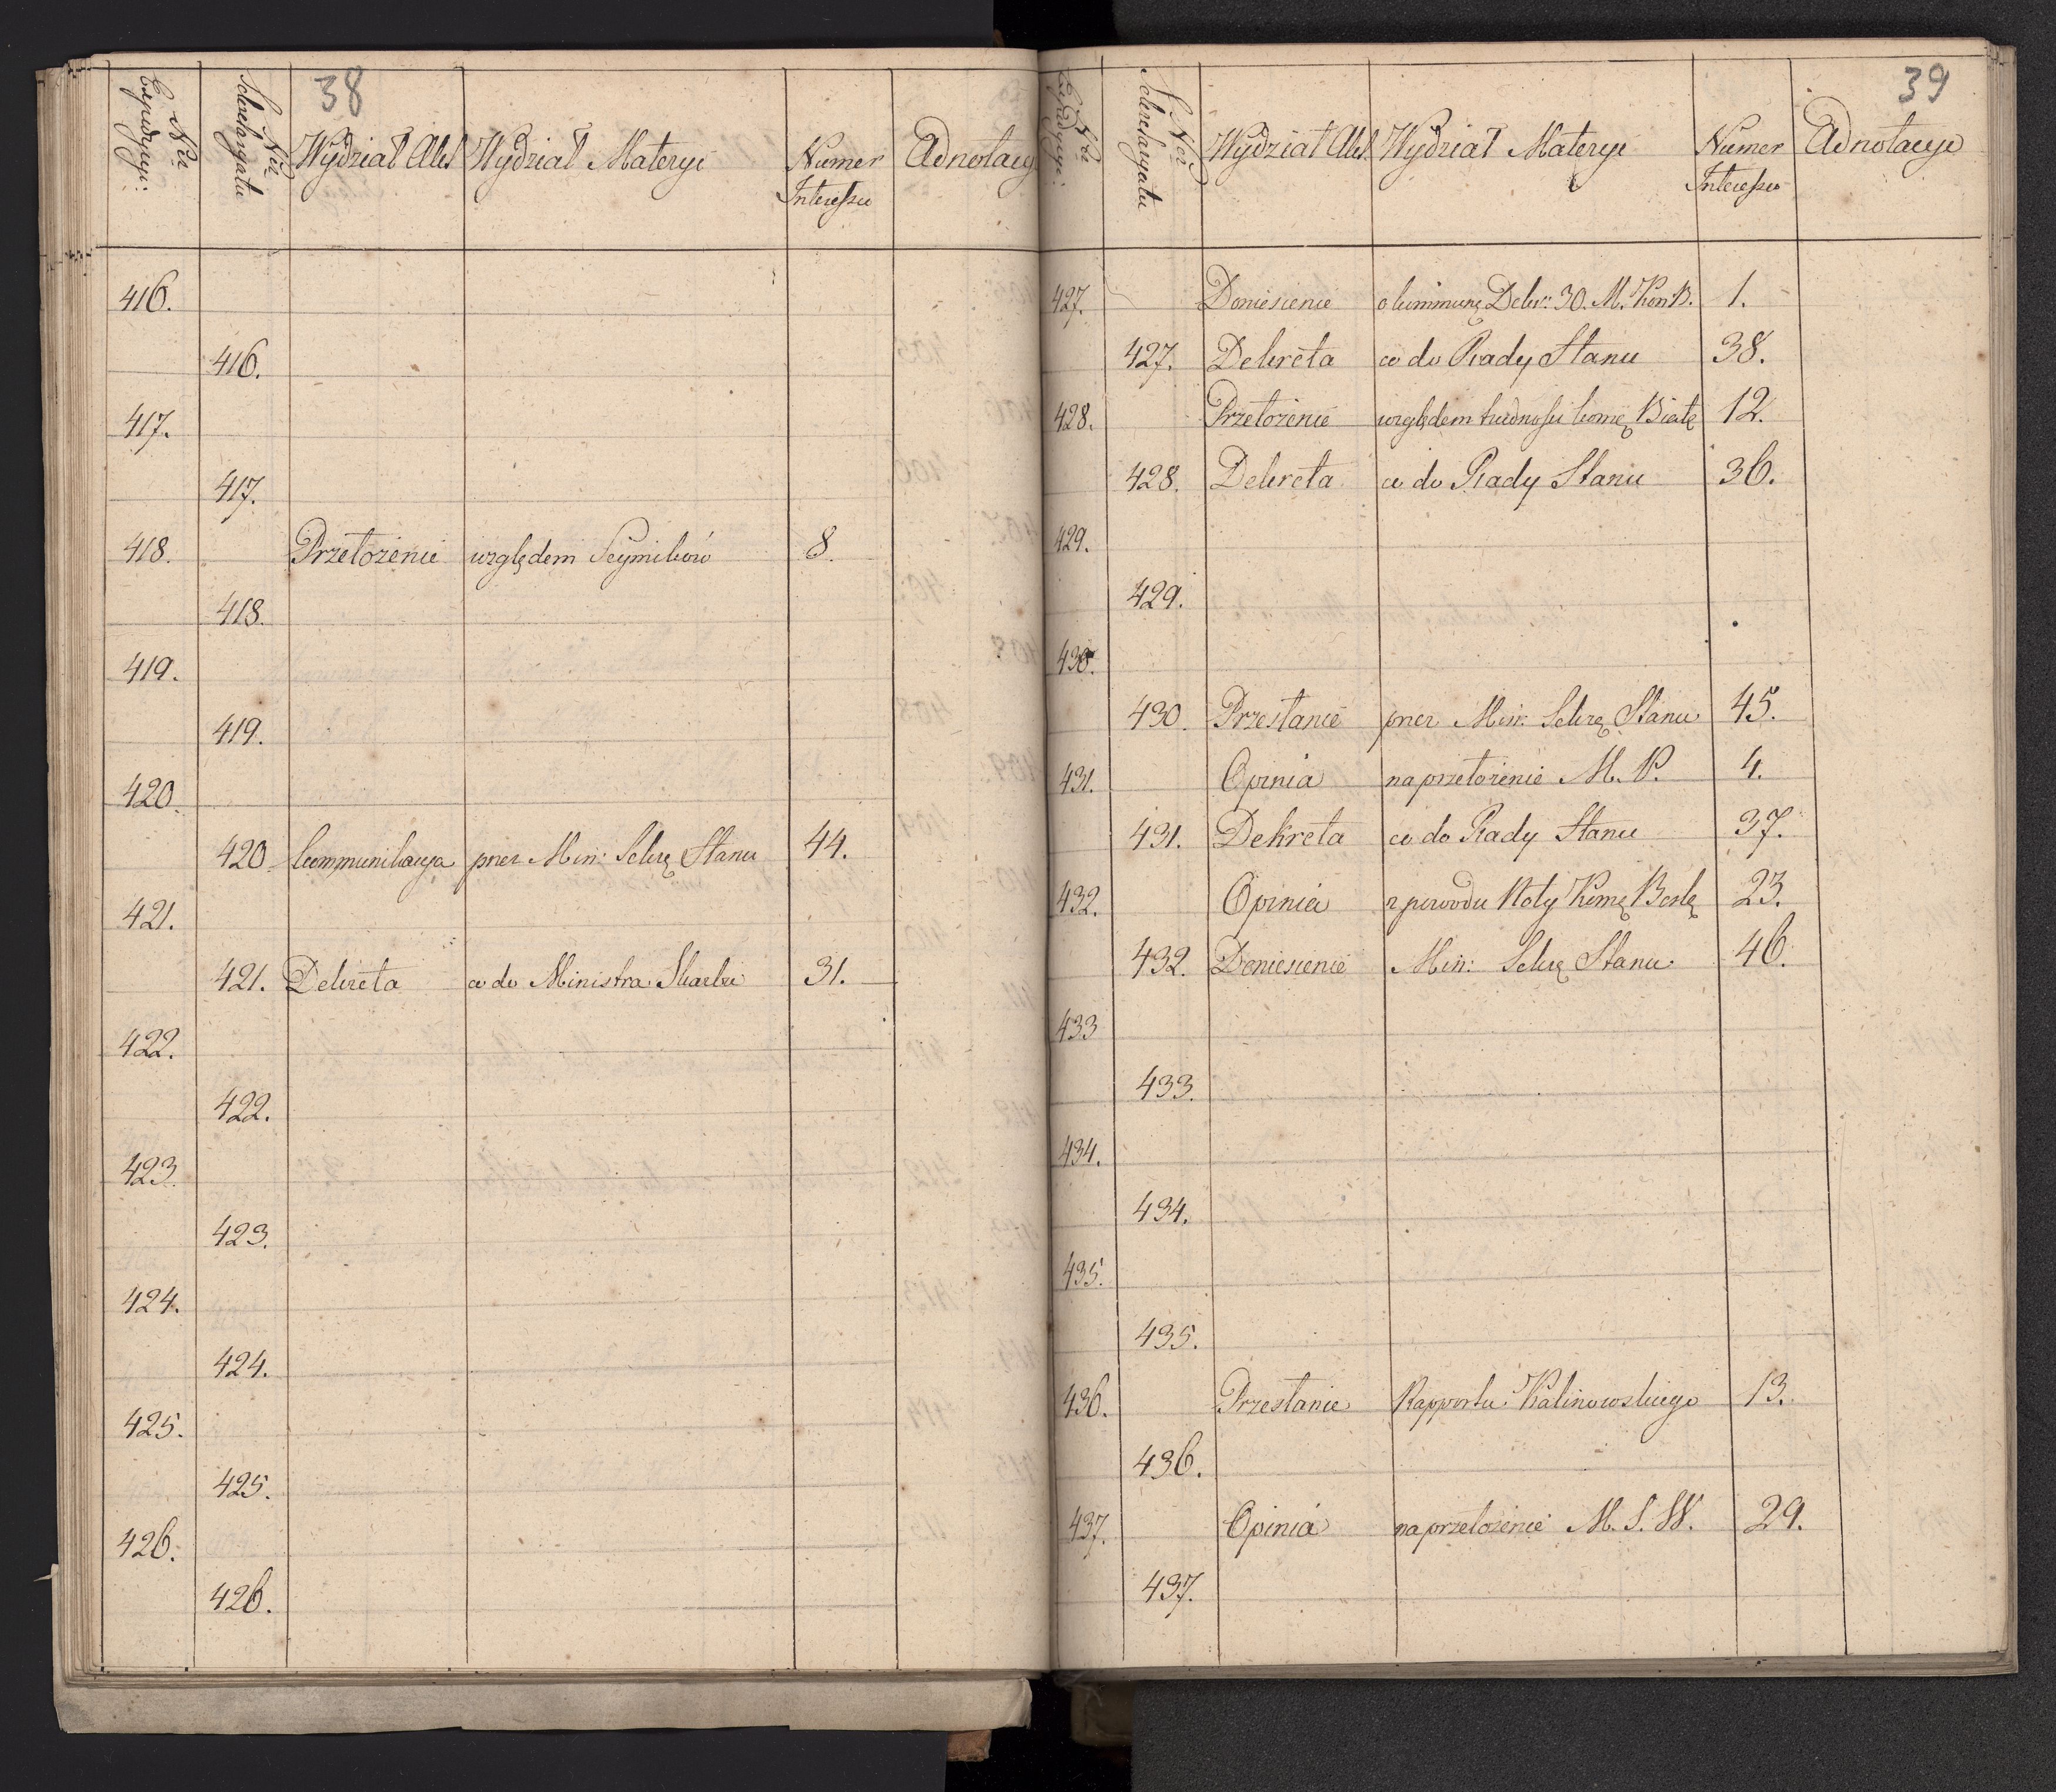 38
Nr Expedycyi: Nr Sekretaryatu Wydział Akt Wydział Materyi Numer Interessu Adnotacy
416.
416.
417.
417.
418. Przełożenie względem Seymików 8.
418.
419.
419.
420.
420. Communikacya przez Min: Sekrę Stanu 44.
421.
421. Dekreta co do Ministra Skarbu 31.
422.
422.
423.
423.
424.
424.
425.
425.
426.
426.
39
Nr Expedycyi: Nr Sekretaryatu Wydział Akt Wydział Materyi Numer Interessu Adnotacye
427. Doniesienie o kommunę Dekr: 30. M. 1.
427. Dekreta co do Rady Stanu 38.
428. Przełożenie względem trudności 12.
428. Dekreta co do Rady Stanu 36.
429.
429.
430.
430. Przesłanie przez Min: Sekrę Stanu 45.
431. Opinia na przełożenie M. P. 4.
431. Dekreta co do Rady Stanu 37.
432. Opinia z powodu Noty 23.
432. Doniesienie Min: Sekrę Stanu 46.
433
433.
434.
434.
435.
435.
436. Przesłanie Rapportu Kalinowskiego 13.
436.
437. Opinia na przełożenie M. S. W. 29.
437.